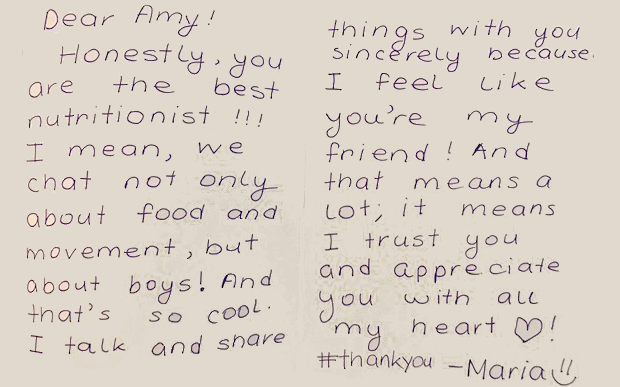 Dear Amy!
Honestly, you
are the best
nutritionist !!!
I mean, we
chat not only
about food and
movement, but
about boys! And
that's so cool.
I talk and share
things with you
sincerely because
I feel like
you're my
friend! And
that means a
lot; it means
I trust you
and appreciate
you with all
my heart ♡!
#thankyou -Maria